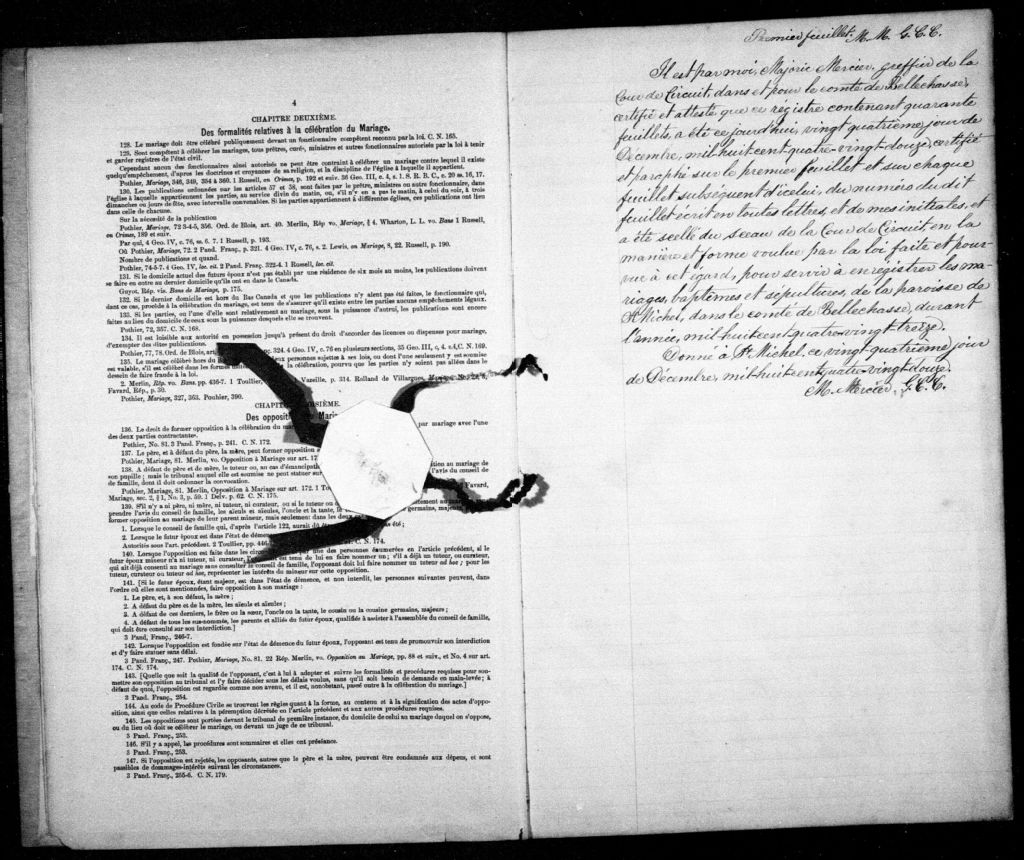 4
CHAPITRE DEUXIÈME.
Des formalités relatives à la célébration du Mariage.
128. Le mariage doit être célébré publiquement devant un fonctionnaire compétent reconnu par la loi. C. N. 165.
129. Sont compétent à célébrer les mariages, tous prêtres, curé, ministres et autres fonctionnaires autorisés par la loi à tenir
et garder registres de l'état civil.
Cependant aucun des fonctionnaires ainsi autorisés ne peut être contraint à célébrer un mariage contre lequel il existe
quelqu'empêchement, d'après les doctrines et croyances de sa religion, et la discipline de l'église à laquelle il appartient.
Pothier, Mariage, 346, 349, 354 à 360. 1 Russell, on Crimes, p. 192 et suiv. 36 Geo. III, c. 4, s. 1. 8. R. B. C., c. 20 ss. 16, 17.
130. Les publications ordonnées sur les articles 57 et 58, sont faites par le prêtre, ministre ou autre fonctionnaire, dans
l'église à laquelle appartiennent les parties, au service divin du matin, ou, s'il n'y en a pas le matin, à celui du soir, à trois
dimanches ou jours de fête, avec intervalle convenables. Si les parties appartiennent à différentes églises, ces publications ont lieu
dans celle de chacune.
Sur la nécessité de la publication
Pothier, Mariage, 72 3-4-5, 356. Ord. de Blois, art. 40. Merlin, Rép vo. Mariage, § 4. Wharton, L. L. vo. Bans 1 Russell,
on Crimes, 189 et suiv.
Par qui, 4 Geo. IV, c. 76, ss. 6. 7. 1 Russell, p. 193.
Où Pothier, Mariage, 72. 2 Pand. Franç., p. 321. 4 Geo. IV, c. 76, s. 2. Lewis, on Mariage, 8, 22. Russell, p. 190.
Nombre de publications et quand.
Pothier, 74-5-7. 4 Geo. IV, loc. cit. 2 Pand. Franç. 322-4. 1 Russell, loc. cit.
131. Si le domicile actuel des futurs époux n'est pas établi par une résidence de six mois au moins, les publications doivent
se faire en outre au dernier domicile qu'ils ont eu dans le Canada.
Guyot, Rép. vis. Bans de Mariage, p. 175.
132. Si le dernier domicile est hors du Bas Canada et que les publications n'y aient pas été faites, le fonctionnaire qui,
dans ce cas, procède à la célébration du mariage, est tenu de s'assurer qu'il existe entre les parties aucuns empêchements légaux.
133. Si les parties, ou l'une d'elle sont relativement au mariage, sous la puissance d'autrui, les publications sont encore
faites au lieu du domicile de ceux sous la puissance desquels elle se trouvent.
Pothier, 72, 357. C. N. 168.
134. Il est loisible aux autorité en possession jusqu'à présent du droit d'accorder des licences ou dispenses pour mariage,
d'exempter des dites publications.
Pothier, 77, 78. Ord. de Blois, art. 324. 4 Geo. IV, c. 76 en plusieurs sections, 35 Geo. III, c. 4. s.4, C. N. 169.
135. Le mariage célébré hors du B deux personnes sujettes à ses lois, ou dont l'une seulement y est soumise
est valable, s'il est célébré dans les formes la célébration, pourvu que les parties n'y soient pas allées dans le
dessein de faire fraude à la loi.
2. Merlin, Rép. vo. Bans. pp. 436-7. 1 Toullier, Vazeille, p. 314. Rolland de Villargues,
Favard, Rép., p. 30.
Pothier, Mariage, 327, 363. Pouhier, 390.
CHAPIT OISIÈME.
Des oppositi Mari
136. Le droit de former opposition à la célébration du ma par mariage avec l'une
des deux parties contractantes.
Pothier, No. 81. 3 Pand. Franç., p. 241. C. N. 172.
137. Le père, et à défaut du père, la mère, peut former opposition
Pothier, Mariage, 81. Merlin, vo. Opposition à Mariage sur art. 17
138. A défaut de père et de mère, le tuteur ou, au cas d'émancipati ition au mariage de
son pupille ; mais le tribunal auquel elle est soumise ne peut statuer sur l'avis du conseil de
famille, dont il doit ordonner la convocation.
Pothier, Mariage, 81. Merlin, Opposition à Mariage sur art. 172. 1 Tou Favard,
Mariage, sec. 2, § 1, No. 3, p. 59. 1 Delv. p. 62. C. N. 175.
139. S'il n'y a ni père, ni mère, ni tuteur, ni curateur, ou si le tuteur ou au mar
prendre l'avis du conseil de famille, les aïeuls et aïeules, l'oncle et la tante, le germains, majeurs
former opposition au mariage de leur parent mineur, mais seulement dans les deux cas
1. Lorsque le conseil de famille qui, d'après l'article 122, aurait dû êt té ;
2. Lorsque le futur époux est dans l'état de démen
Autorités sous l'art. précédent. 2 Toullier, pp. 446 C. N. 174.
140. Lorsque l'opposition est faite dans les circo par une des personnes énumérées en l'article précédent, si le
futur époux mineur n'a ni tuteur, ni curateur, l' est tenu de lui en faire nommer un ; s'il a déjà un tuteur, ou curateur,
qui ait déjà consenti au mariage sans consulter le conseil de famille, l'opposant doit lui faire nommer un tuteur ad hoc ; pour les
tuteur, curateur ou tuteur ad hoc, représenter les intérêts du mineur sur cette opposition.
141. [Si le futur époux, étant majeur, est dans l'état de démence, et non interdit, les personnes suivantes peuvent, dans
l'ordre où elles sont mentionnées, faire opposition à son mariage :
1. Le père, et, à son défaut, la mère ;
2. A défaut du père et de la mère, les aïeuls et aïeules ;
3. A défaut de ces derniers, le frère ou la sœur, l'oncle ou la tante, le cousin ou la cousine germains, majeurs ;
4. A défaut de tous les sus-nommés, les parents et alliés du futur époux, qualifiés à assister à l'assemblée du conseil de famille,
qui doit être consulté sur son interdiction.]
3 Pand. Franç., 246-7.
142. Lorsque l'opposition est fondée sur l'état de démence du futur époux, l'opposant est tenu de promouvoir son interdiction
et d'y faire statuer sans délai.
3 Pand. Franç., 247. Pothier, Mariage, No. 81. 22 Rép. Merlin, vo. Opposition au Mariage, pp. 88 et suiv., et No. 4 sur art.
174. C. N. 174.
143. [Quelle que soit la qualité de l'opposant, c'est à lui à adopter et suivre les formalités et procédures requises pour sou-
mettre son opposition au tribunal et l'y faire décider sous les délais voulus, sans qu'il soit besoin de demande en main-levée ; à
défaut de quoi, l'opposition est regardée comme non avenu, et il est, nonobstant, passé outre à la célébration du mariage.]
3 Pand. Franç., 254.
144. Au code de Procédure Civile se trouvent les règles quant à la forme, au contenu et à la signification des actes d'oppo-
sition, ainsi que celles relatives à la péremption décrétée en l'article précédent et aux autres procédures requises.
145. Les oppositions sont portées devant le tribunal de première instance, du domicile de celui au mariage duquel on s'oppose,
ou du lieu où doit se célébrer le mariage, ou devant un juge de ce tribunal.
3 Pand. Franç., 253.
146. S'il y a appel, les procédures sont sommaires et elles ont préséance.
3 Pand. Franç., 253.
147. Si l'opposition est rejetée, les opposants, autres que le père et la mère, peuvent être condamnés aux dépens, et sont
passibles de dommages-intérêts suivant les circonstances.
3 Pand. Franç., 255-6. C. N. 179.
Premier feuillet. M. M. G. C. C.
Il est par moi, Majoric Mercier, greffier de la
Cour de Circuit, dans et pour le comté de Bellechasse,
certifié et attesté que ce registre contenant quarante
feuillets, a été ce jourd'hui, vingt quatrième jour de
Décembre, mil-huit cent-quatre-vingt-douze, certifié
et paraphé sur le premier feuillet et sur chaque
feuillet subséquent d'icelui, du numéro du dit
feuillet écrit en toutes lettres, et de mes initiales, et
a été scellé du sceau de la Cour de Circuit, en la
manière et forme voulue par la loi faite et pour-
vue à cet égard, pour servir à enregistrer les ma-
riages, baptêmes et sépultures, de la paroisse de
St Michel, dans le comté de Bellechasse, durant
l'année, mil-huit cent-quatre-vingt-treize.
Donné à St Michel, ce vingt-quatrième jour
de Décembre, mil-huit cent quatre-vingt-douze.
M. Mercier, G. C. C.